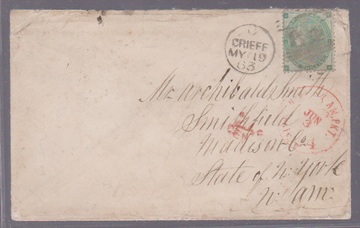 CRIEFF
MY 19
63
Mr Archibald Smith
Smithfield
Madison Co
State of N. York
N. Am.
AM. PKT.
JUN